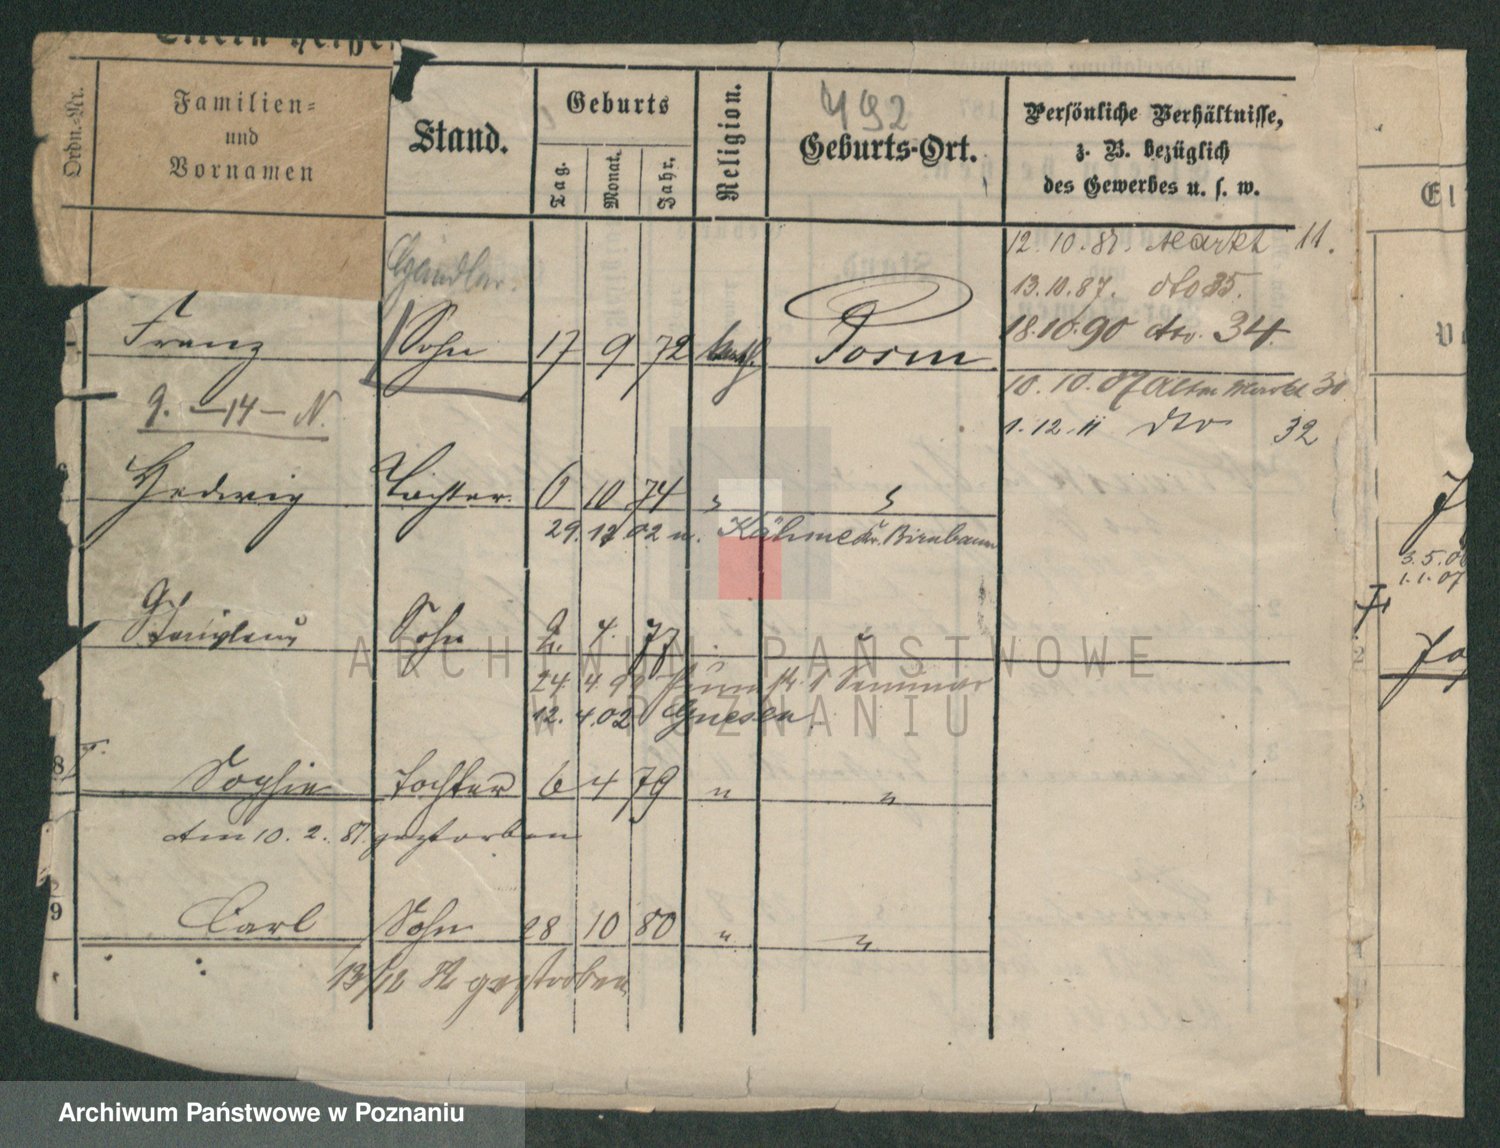 Eltern heiße
Ordn.-Nr.
Familien=
und
Vornamen
Stand.
Geburts
Tag.
Monat.
Jahr.
Religion.
492
Geburts-Ort.
Persönliche Verhältnisse,
z. B. bezüglich
des Gewerbes u. s. w.
12.10.87. Markt 11.
13.10.87. dto 35.
18.10.90 dto. 34.
Franz Sohn 17 9 72 kath. Posen
10.10.07 Alter Markt 30
1.12.11 dto 32
9. -14- N.
Hedwig Tochter. 6 10 74 " "
29. 12 02 n. Kähme Kr. Birnbaum
Stanislaus Sohn 2. 4. 77 "
24. 4. Seminar
12. 4. 02 Gnesen
8 Sophie Tochter 6 4 79 " "
Am 10. 2. 81. gestorben
9 Carl Sohn 28 10 80 " "
13/12 gestorben
El
3.5.0
1.1.07
Jo
ARCHIWUM PAŃSTWOWE
W POZNANIU
Archiwum Państwowe w Poznaniu